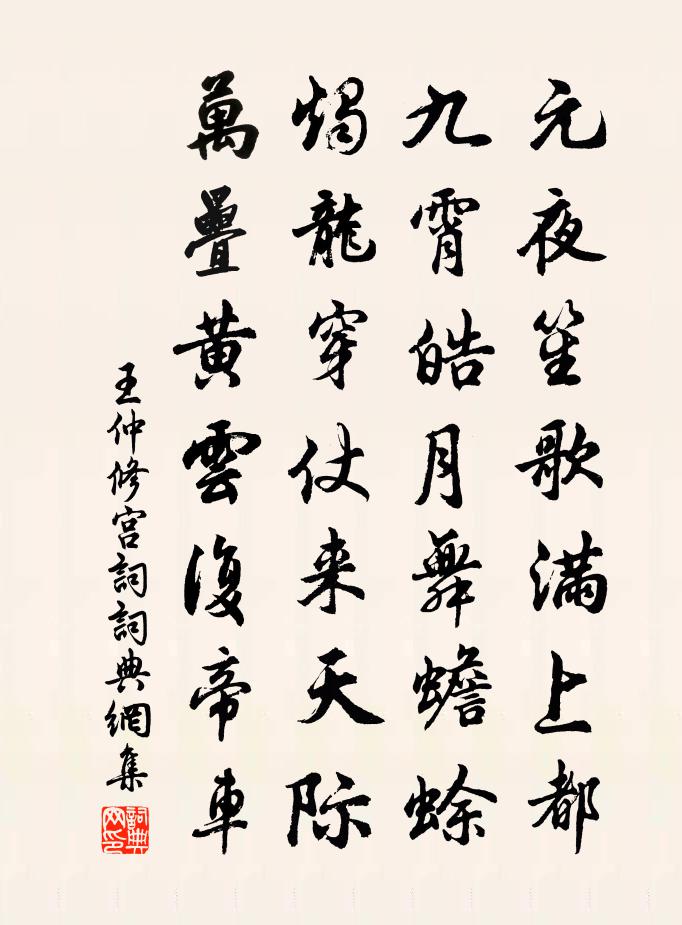 元夜笙歌满上都
九霄皓月舞蟾蜍
燭龍穿仗来天际
萬疊黄雲復帝車
王仲修宫詞詞典網集
詞典
网印